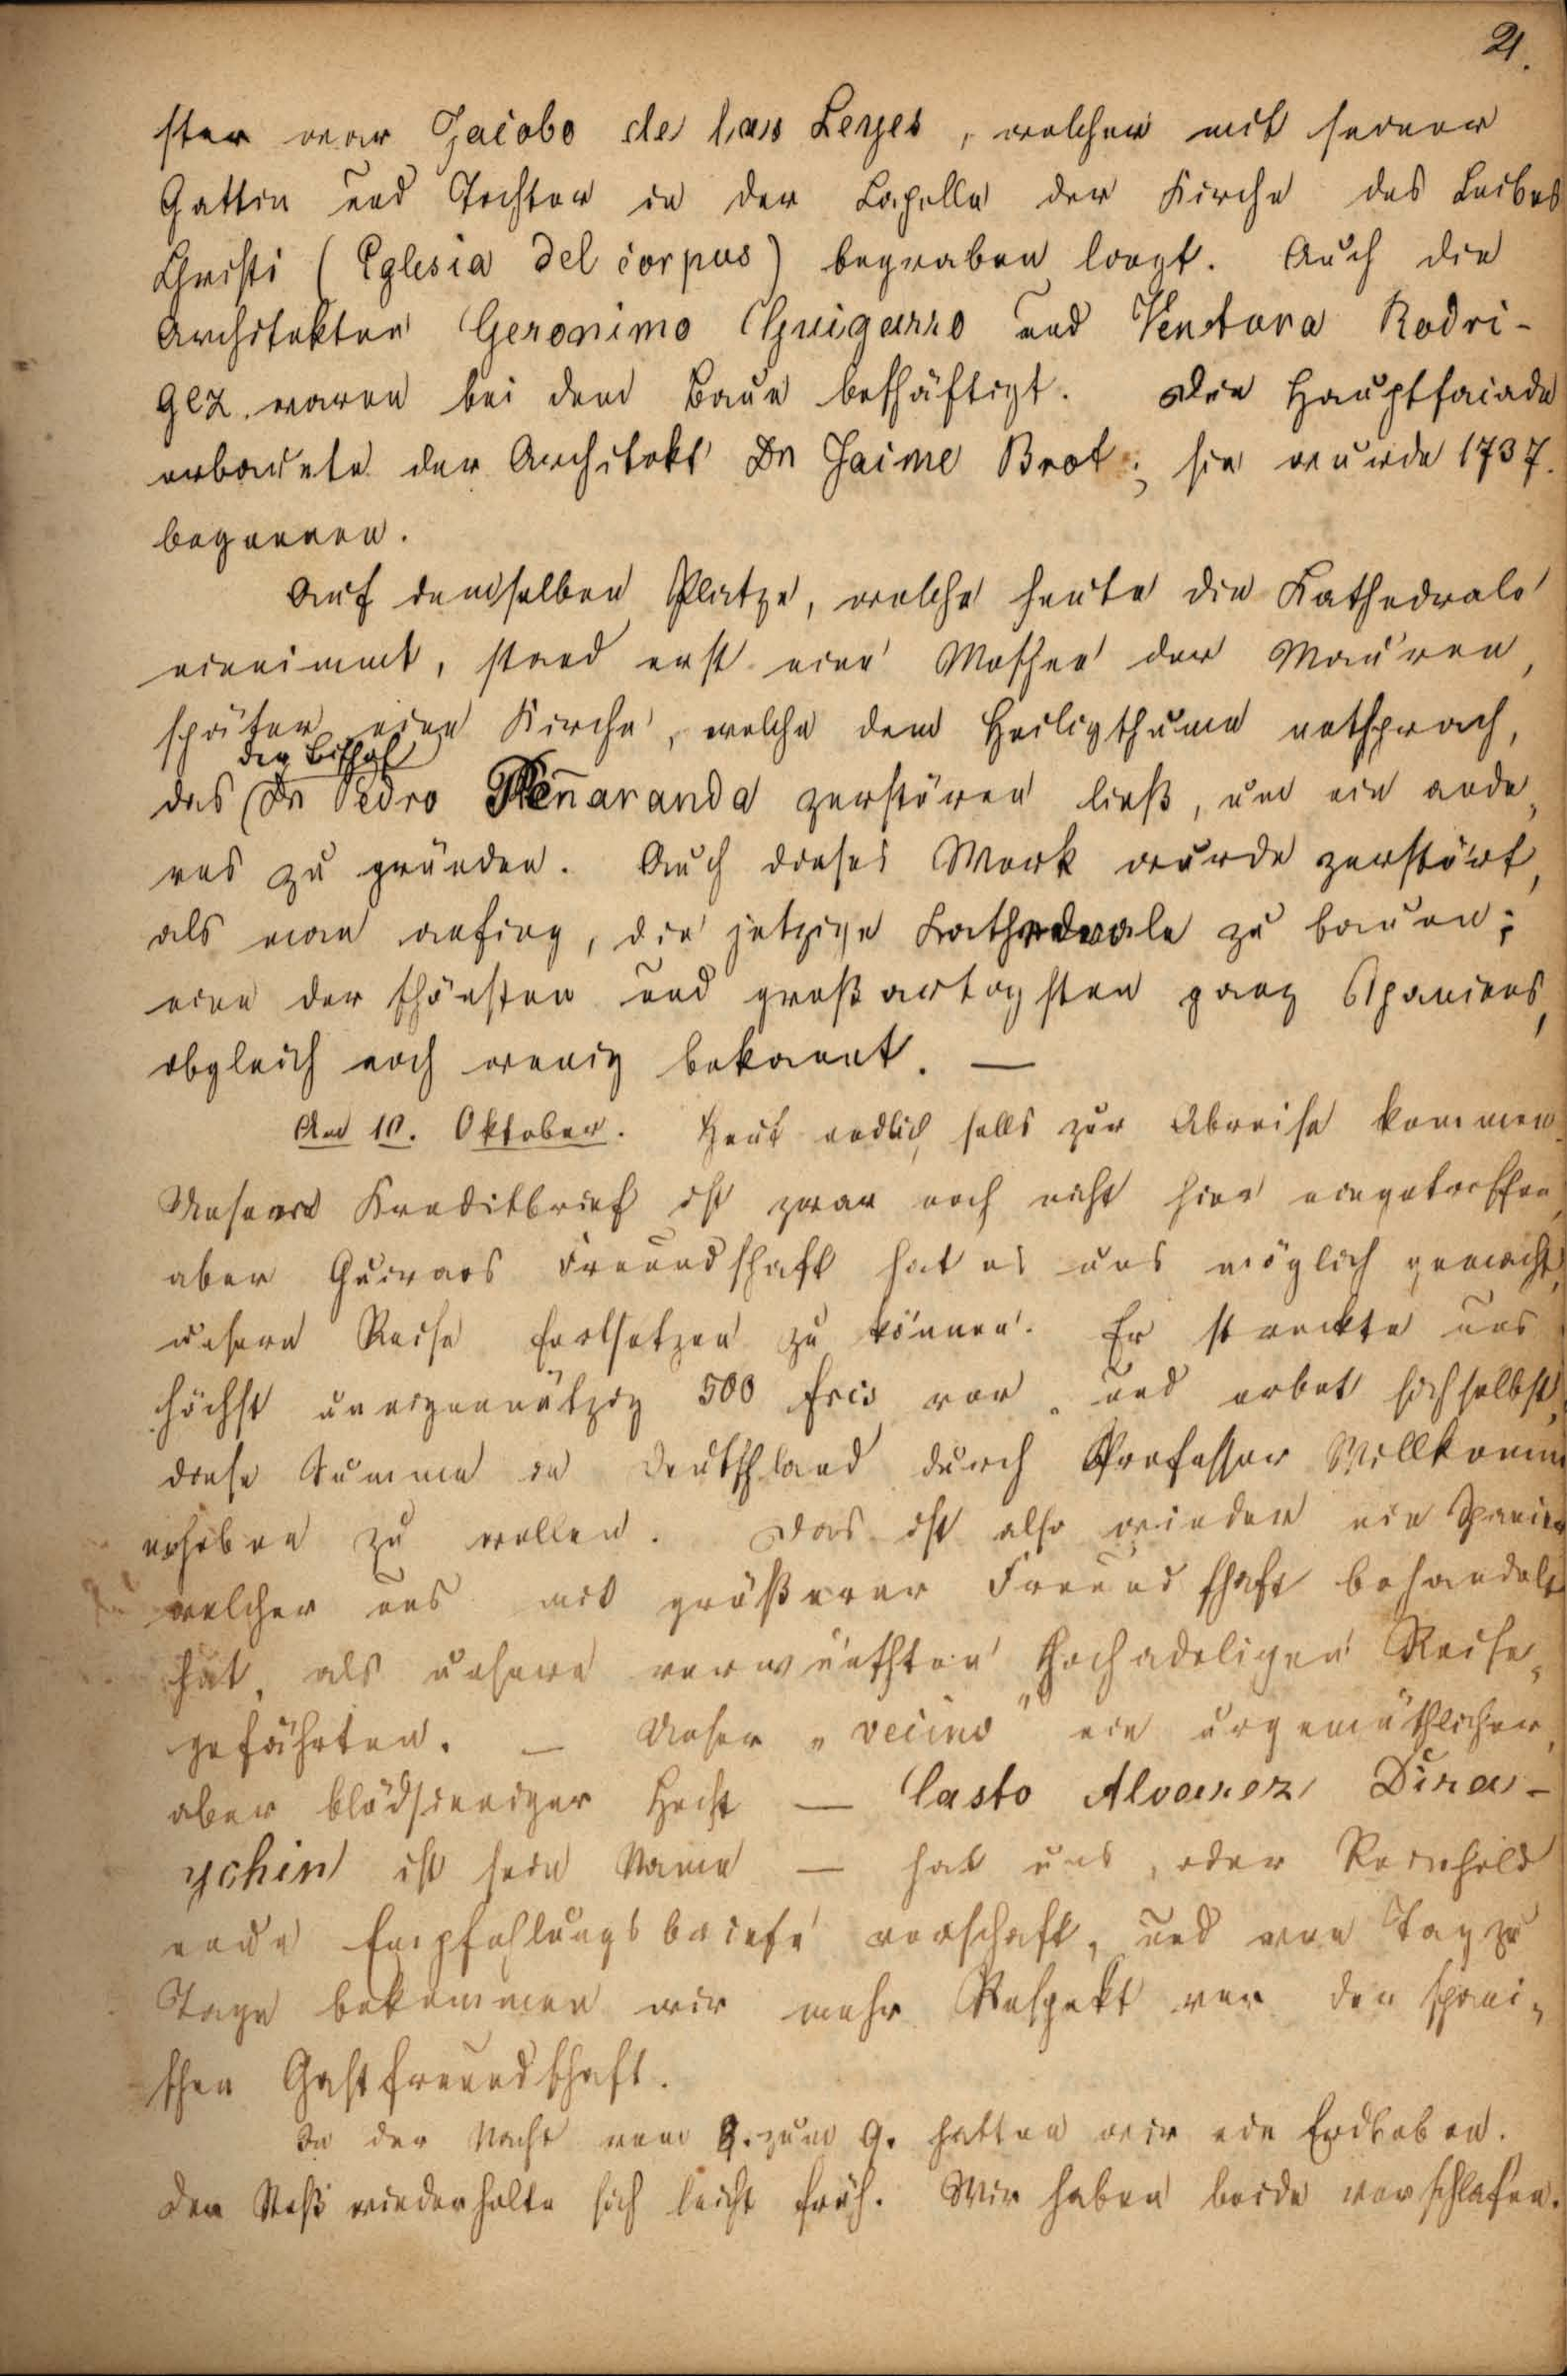 21.
ster war Jacobo de las Leyes, welcher mit seiner
Gattin und Tochter in der Capelle der Kirche des Leibes
Christi (Eglesia del corpus) begraben liegt. Auch die
Architekten Geronimo Guigarro und Ventura Rodri-
gez waren bei dem Baue beschäftigt. Die Hauptfaciade
erbauete der Architekt Dn Jaime Brot; sie wurde 1737.
begonnen.
Auf demselben Platze, welche heute die Kathedrale
einnimmt, stand erst eine Moschee der Mauren,
später eine Kirche, welche dem Heiligthume entsprach,
der Bischof
das Dn Pedro Peñaranda zerstören ließ, um ein ande-
res zu gründen. Auch dieses Werk wurde zerstört,
als man anfing, die jetzige Kathedrale zu bauen;
eine der schönsten und großartigsten ganz Spaniens,
obgleich noch wenig bekannt. —
Am 10. Oktober. Heut endlich solls zur Abreise kommen.
Unser Kreditbrief ist zwar noch nicht hier eingetroffen,
aber Guiraos Freundschaft hat es uns möglich gemacht,
unsere Reise fortsetzen zu können. Er streckte uns
höchst uneigennützig 500 frcs vor, und erbot sich selbst,
diese Summe in Deutschland durch Professor Willkomm
erheben zu wollen. Das ist also wieder ein Spanier
welcher uns mit größerer Freundschaft behandelt
hat, als unsere verwünschten hochadeligen Reise-
gefährten. — Unser „vecino" ein urgemüthlicher,
aber blödsinniger Hecht — Casto Alvarez Dira-
ychin ist sein Name — hat uns, oder Reinhold
neue Empfehlungsbriefe verschafft, und von Tag zu
Tage bekommen wir mehr Respekt vor der spani-
schen Gastfreundschaft.
In der Nacht vom 8. zum 9. hatten wir ein Erdbeben.
Der Stoß wiederholte sich leicht früh. Wir haben beide verschlafen.